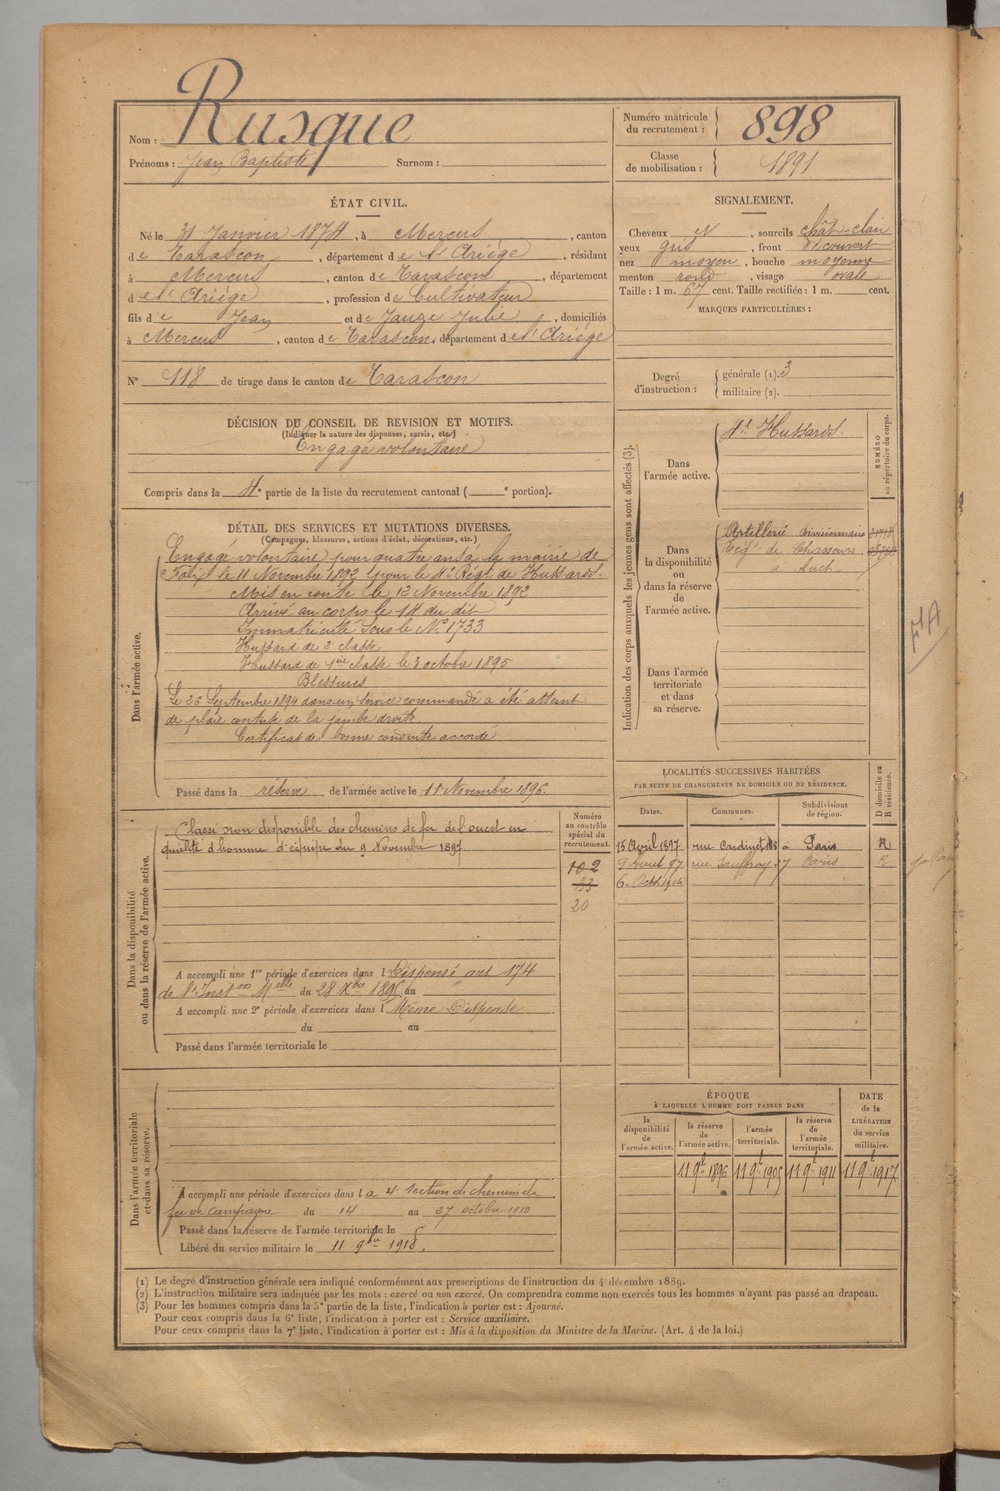 Nom : Rusque
Prénoms : Jean Baptiste Surnom :
Numéro matricule du recrutement : 898
Classe de mobilisation : 1891
ÉTAT CIVIL.
Né le 31 Janvier 1874, à Mercus, canton
de Tarascon, département de l'Ariège, résidant
à Mercus, canton de Tarascon, département
d e l'Ariège, profession de Cultivateur
fils de Jean et de Jauze Julie, domiciliés
à Mercus, canton de Tarascon, département de l'Ariège
N° 118 de tirage dans le canton de Tarascon
SIGNALEMENT.
Cheveux et, sourcils chât-clair
yeux gris, front découvert
nez moyen, bouche moyenne
menton rond, visage ovale
Taille : 1 m. 67 cent. Taille rectifiée : 1 m. cent.
MARQUES PARTICULIÈRES :
Degré d'instruction : générale (1). 3
militaire (2).
DÉCISION DU CONSEIL DE REVISION ET MOTIFS.
(Indiquer la nature des dispenses, sursis, etc.)
Engagé volontaire
Compris dans la 4e partie de la liste du recrutement cantonal ( e portion).
DÉTAIL DES SERVICES ET MUTATIONS DIVERSES.
(Campagnes, blessures, actions d'éclat, décorations, etc.)
Dans l'armée active.
Engagé volontaire pour quatre ans à la mairie de
Foix le 11 Novembre 1892 pour le 11e Régt de Hussards.
Mis en route le 12 Novembre 1892
Arrivé au corps le 14 du dit
Immatriculé sous le N° 1733
Hussard de 2e classe
Hussard de 1ère classe le 3 octobre 1895
Blessures
Le 26 Septembre 1894 dans un service commandé a été atteint
de plaie contuse de la jambe droite
Certificat de bonne conduite accordé
Passé dans la réserve de l'armée active le 11 Novembre 1896
Indication des corps auxquels les jeunes gens sont affectés (3).
NUMÉRO au répertoire du corps.
Dans l'armée active.
11e Hussards.
Dans la disponibilité ou dans la réserve de l'armée active.
Artillerie divisionnaire
Régt de Chasseurs
à Auch
Dans l'armée territoriale et dans sa réserve.
F1A
LOCALITÉS SUCCESSIVES HABITÉES
PAR SUITE DE CHANGEMENTS DE DOMICILE OU DE RÉSIDENCE.
Dates. Communes. Subdivisions de région. D domicile ou R résidence.
15 Avril 1897 rue Cardinet 185 à Paris R
9 Août 97 rue Sauffroy 27 Paris R
6 Octb 1906
Dans la disponibilité ou dans la réserve de l'armée active.
Numéro au contrôle spécial du recrutement.
Classé non disponible des chemins de fer de l'ouest en
qualité d'homme d'équipe du 9 Novembre 1897
102
33
20
A accompli une 1re période d'exercices dans l Dispensé art 174
de l'Inston Melle du 28 Xbre 1895 au
A accompli une 2e période d'exercices dans l Même Dispense
du au
Passé dans l'armée territoriale le
ÉPOQUE
À LAQUELLE L'HOMME DOIT PASSER DANS
la disponibilité de l'armée active. la réserve de l'armée active. l'armée territoriale. la réserve de l'armée territoriale.
DATE de la LIBÉRATION du service militaire.
11 9b 1896 11 9b 1905 11 9b 1911 11 9b 1917
Dans l'armée territoriale et dans sa réserve.
A accompli une période d'exercices dans l a 4e section de chemin de
fer de campagne du 14 au 27 octobre 1910
Passé dans la réserve de l'armée territoriale le
Libéré du service militaire le 11 9bre 1918.
(1) Le degré d'instruction générale sera indiqué conformément aux prescriptions de l'instruction du 4 décembre 1889.
(2) L'instruction militaire sera indiquée par les mots : exercé ou non exercé. On comprendra comme non exercés tous les hommes n'ayant pas passé au drapeau.
(3) Pour les hommes compris dans la 5e partie de la liste, l'indication à porter est : Ajourné.
Pour ceux compris dans la 6e liste, l'indication à porter est : Service auxiliaire.
Pour ceux compris dans la 7e liste, l'indication à porter est : Mis à la disposition du Ministre de la Marine. (Art. 4 de la loi.)